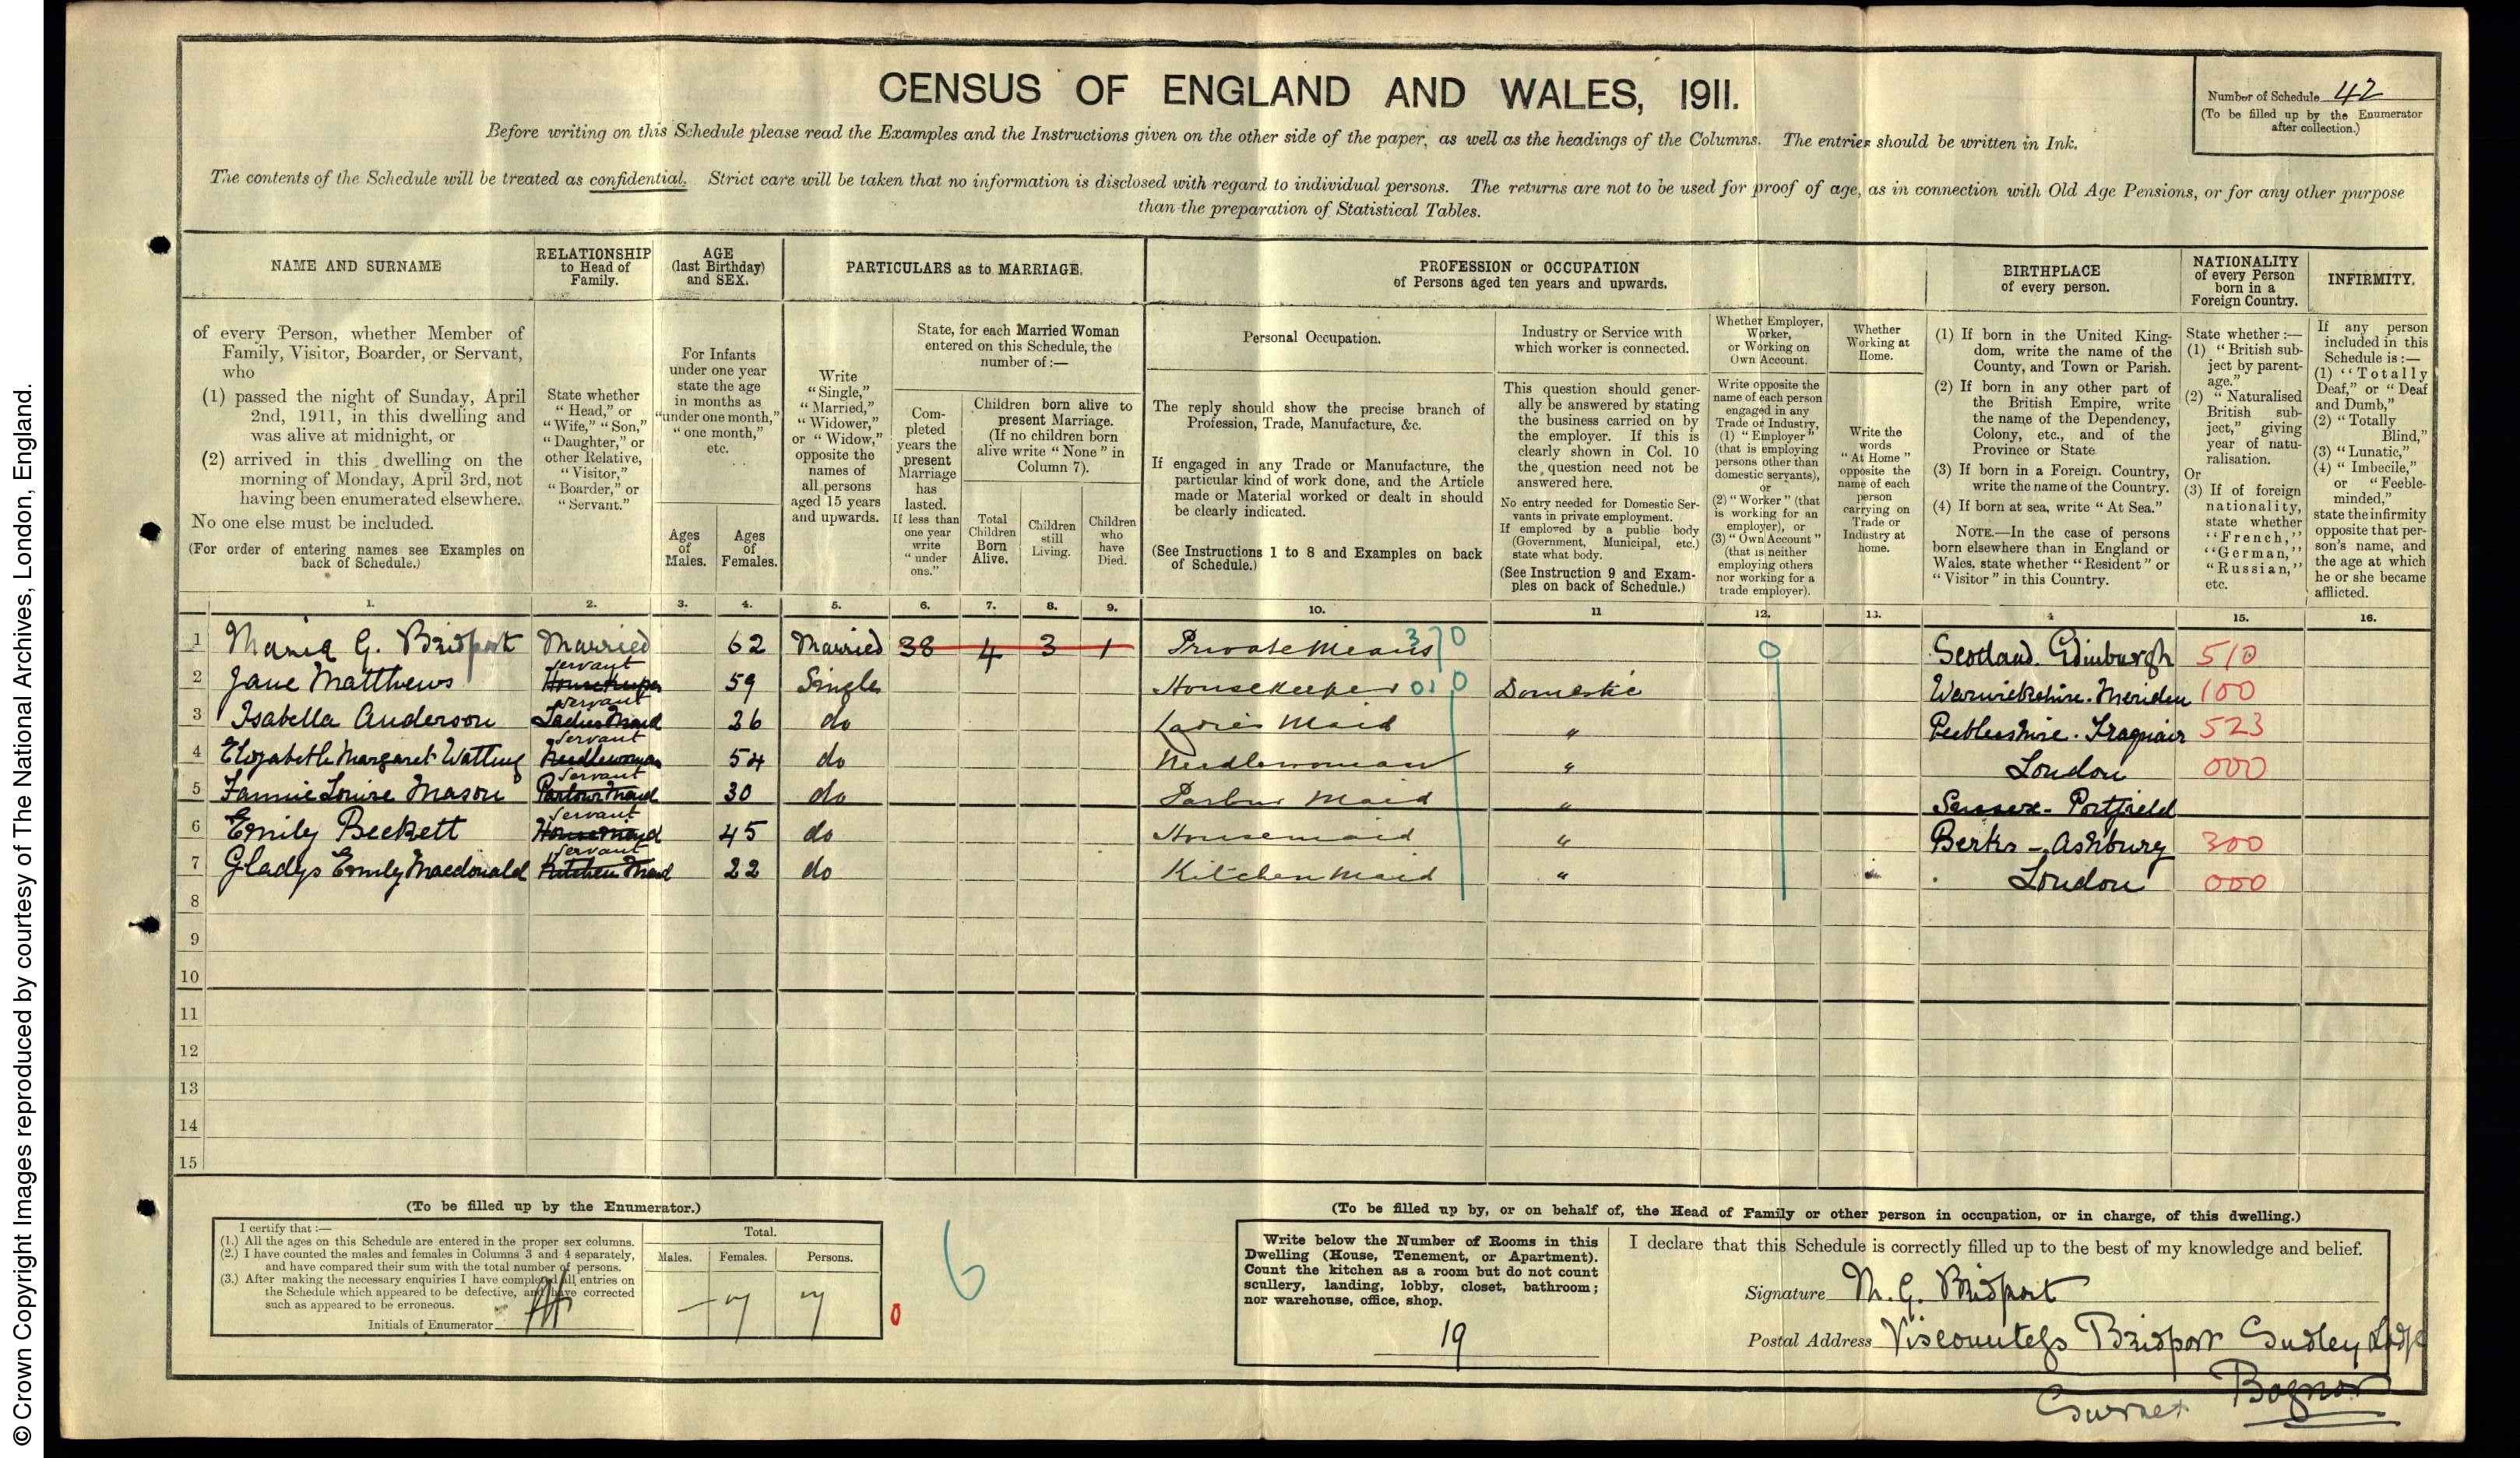 © Crown Copyright Images reproduced by courtesy of The National Archives, London, England.
CENSUS OF ENGLAND AND WALES, 1911.
Number of Schedule 42
(To be filled up by the Enumerator
after collection.)
Before writing on this Schedule please read the Examples and the Instructions given on the other side of the paper, as well as the headings of the Columns. The entries should be written in Ink.
The contents of the Schedule will be treated as confidential. Strict care will be taken that no information is disclosed with regard to individual persons. The returns are not to be used for proof of age, as in connection with Old Age Pensions, or for any other purpose
than the preparation of Statistical Tables.
NAME AND SURNAME
of every Person, whether Member of
Family, Visitor, Boarder, or Servant,
who
(1) passed the night of Sunday, April
2nd, 1911, in this dwelling and
was alive at midnight, or
(2) arrived in this dwelling on the
morning of Monday, April 3rd, not
having been enumerated elsewhere.
No one else must be included.
(For order of entering names see Examples on
back of Schedule.)
RELATIONSHIP
to Head of
Family.
State whether
"Head," or
"Wife," "Son,"
"Daughter," or
other Relative,
"Visitor,"
"Boarder," or
"Servant."
AGE
(last Birthday)
and SEX.
For Infants
under one year
state the age
in months as
"under one month,"
"one month,"
etc.
Ages
of
Males.
Ages
of
Females.
PARTICULARS as to MARRIAGE.
Write
"Single,"
"Married,"
"Widower,"
or "Widow,"
opposite the
names of
all persons
aged 15 years
and upwards.
State, for each Married Woman
entered on this Schedule, the
number of:—
Com-
pleted
years the
present
Marriage
has
lasted.
If less than
one year
write
"under
one."
Children born alive to
present Marriage.
(If no children born
alive write "None" in
Column 7).
Total
Children
Born
Alive.
Children
still
Living.
Children
who
have
Died.
PROFESSION or OCCUPATION
of Persons aged ten years and upwards.
Personal Occupation.
The reply should show the precise branch of
Profession, Trade, Manufacture, &c.
If engaged in any Trade or Manufacture, the
particular kind of work done, and the Article
made or Material worked or dealt in should
be clearly indicated.
(See Instructions 1 to 8 and Examples on back
of Schedule.)
Industry or Service with
which worker is connected.
This question should gener-
ally be answered by stating
the business carried on by
the employer. If this is
clearly shown in Col. 10
the question need not be
answered here.
No entry needed for Domestic Ser-
vants in private employment.
If employed by a public body
(Government, Municipal, etc.)
state what body.
(See Instruction 9 and Exam-
ples on back of Schedule.)
Whether Employer,
Worker,
or Working on
Own Account.
Write opposite the
name of each person
engaged in any
Trade or Industry,
(1) "Employer"
(that is employing
persons other than
domestic servants),
or
(2) "Worker" (that
is working for an
employer), or
(3) "Own Account"
(that is neither
employing others
nor working for a
trade employer).
Whether
Working at
Home.
Write the
words
"At Home"
opposite the
name of each
person
carrying on
Trade or
Industry at
home.
BIRTHPLACE
of every person.
(1) If born in the United King-
dom, write the name of the
County, and Town or Parish.
(2) If born in any other part of
the British Empire, write
the name of the Dependency,
Colony, etc., and of the
Province or State.
(3) If born in a Foreign Country,
write the name of the Country.
(4) If born at sea, write "At Sea."
NOTE.—In the case of persons
born elsewhere than in England or
Wales, state whether "Resident" or
"Visitor" in this Country.
NATIONALITY
of every Person
born in a
Foreign Country.
State whether:—
(1) "British sub-
ject by parent-
age."
(2) "Naturalised
British sub-
ject," giving
year of natu-
ralisation.
Or
(3) If of foreign
nationality,
state whether
"French,"
"German,"
"Russian,"
etc.
INFIRMITY.
If any person
included in this
Schedule is:—
(1) "Totally
Deaf," or "Deaf
and Dumb,"
(2) "Totally
Blind,"
(3) "Lunatic,"
(4) "Imbecile,"
or "Feeble-
minded,"
state the infirmity
opposite that per-
son's name, and
the age at which
he or she became
afflicted.
1. 2. 3. 4. 5. 6. 7. 8. 9. 10. 11 12. 13. 4 15. 16.
1 Maria G. Bridport Married 62 Married 38 4 3 1 Private Means 370 0 Scotland. Edinburgh 510
2 Jane Matthews servant Housekeeper 59 Single Housekeeper 010 Domestic Warwickshire. Meriden 100
3 Isabella Anderson servant Ladies Maid 36 do Ladies Maid " Peeblesshire. Traquair 523
4 Elizabeth Margaret Watling servant Needlewoman 54 do Needlewoman " London 000
5 Fannie Louise Mason servant Parlour Maid 30 do Parlour Maid " Sussex - Portfield
6 Emily Beckett servant Housemaid 45 do Housemaid " Berks - Ashbury 300
7 Gladys Emily Macdonald servant Kitchen Maid 22 do Kitchen Maid " London 000
8
9
10
11
12
13
14
15
(To be filled up by the Enumerator.)
I certify that:—
(1.) All the ages on this Schedule are entered in the proper sex columns.
(2.) I have counted the males and females in Columns 3 and 4 separately,
and have compared their sum with the total number of persons.
(3.) After making the necessary enquiries I have completed all entries on
the Schedule which appeared to be defective, and have corrected
such as appeared to be erroneous.
Initials of Enumerator
Total.
Males. Females. Persons.
— 7 7
0
6
(To be filled up by, or on behalf of, the Head of Family or other person in occupation, or in charge, of this dwelling.)
Write below the Number of Rooms in this
Dwelling (House, Tenement, or Apartment).
Count the kitchen as a room but do not count
scullery, landing, lobby, closet, bathroom;
nor warehouse, office, shop.
19
I declare that this Schedule is correctly filled up to the best of my knowledge and belief.
Signature M. G. Bridport
Postal Address Viscountess Bridport Sudley Lodge
Bognor
Sussex